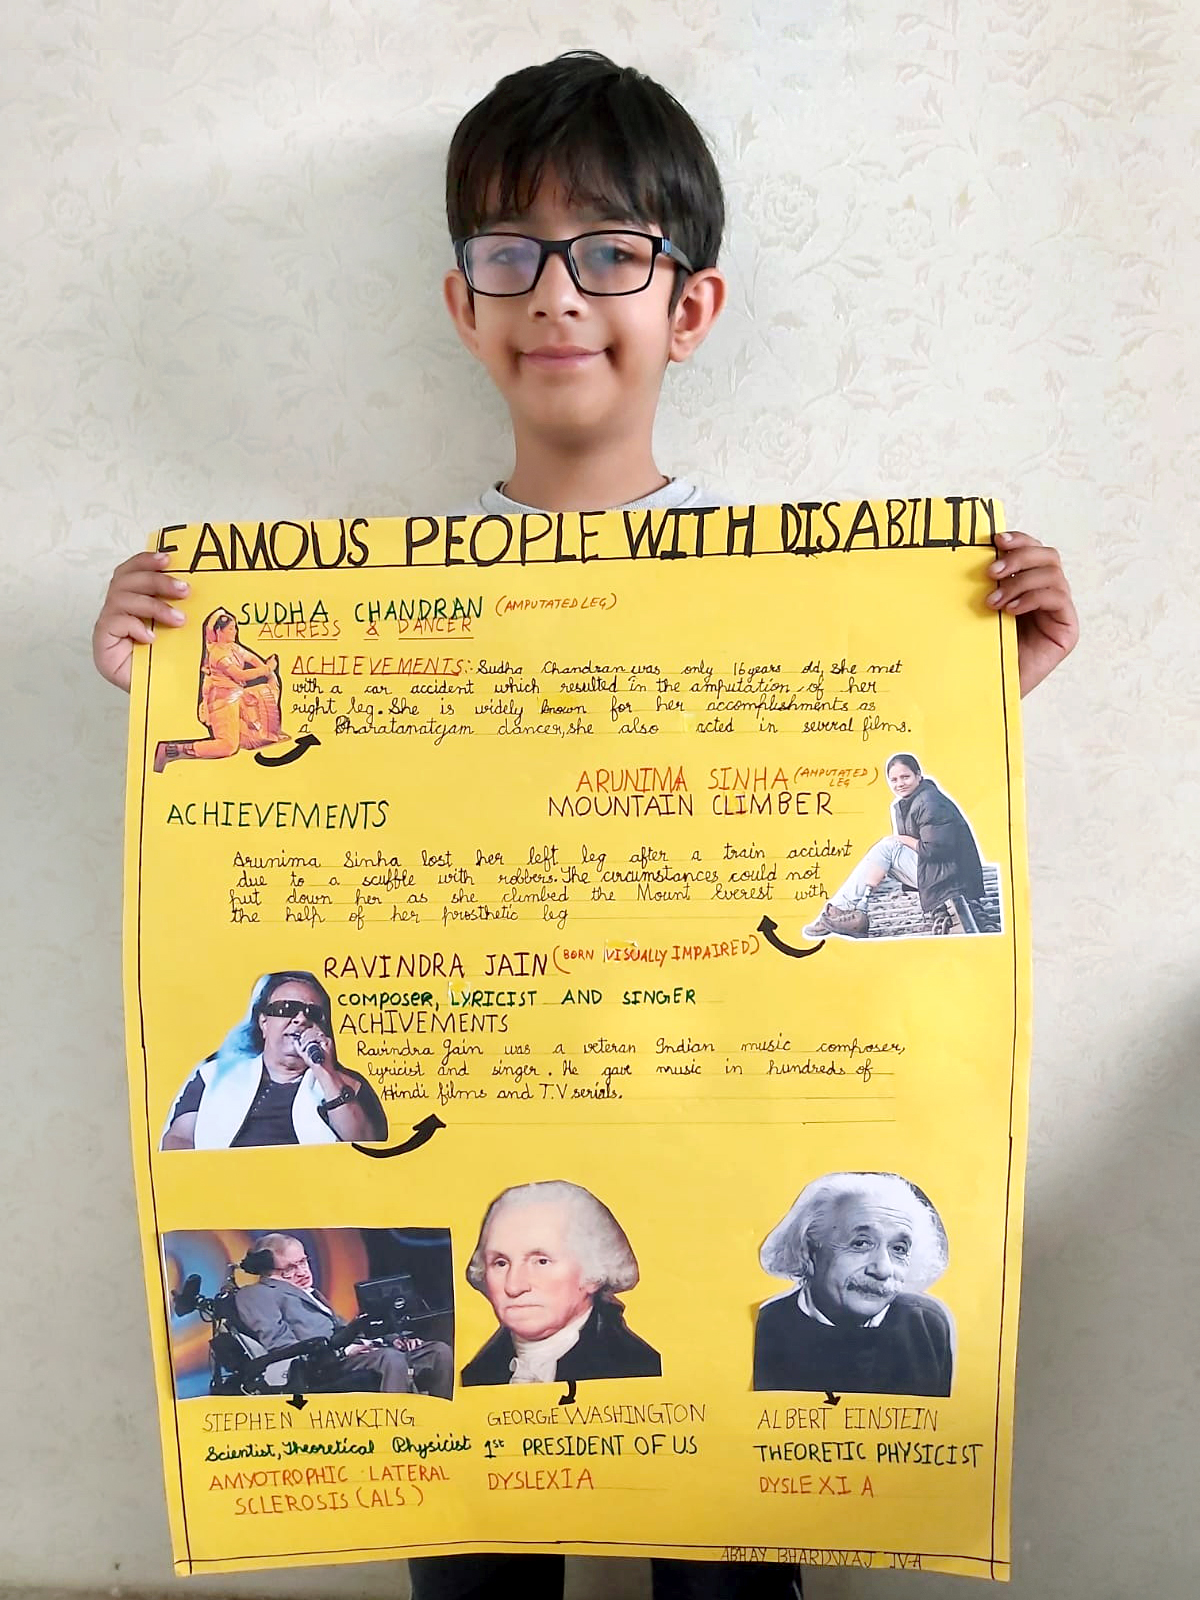 FAMOUS PEOPLE WITH DISABILITY
SUDHA CHANDRAN (AMPUTATED LEG)
ACTRESS & DANCER
ACHIEVEMENTS:- Sudha Chandran was only 16 years old, She met
with a car accident which resulted in the amputation of her
right leg. She is widely known for her accomplishments as
a Bharatanatyam dancer, she also acted in several films.
ARUNIMA SINHA (AMPUTATED LEG)
MOUNTAIN CLIMBER
ACHIEVEMENTS
Arunima Sinha lost her left leg after a train accident
due to a scuffle with robbers. The circumstances could not
put down her as she climbed the Mount Everest with
the help of her prosthetic leg
RAVINDRA JAIN (BORN VISUALLY IMPAIRED)
COMPOSER, LYRICIST AND SINGER
ACHIVEMENTS
Ravindra Jain was a veteran Indian music composer,
lyricist and singer. He gave music in hundreds of
Hindi films and T.V serials.
STEPHEN HAWKING
Scientist, Theoretical Physicist
AMYOTROPHIC LATERAL
SCLEROSIS (ALS)
GEORGE WASHINGTON
1st PRESIDENT OF US
DYSLEXIA
ALBERT EINSTEIN
THEORETIC PHYSICIST
DYSLEXIA
ABHAY BHARDWAJ IV-A